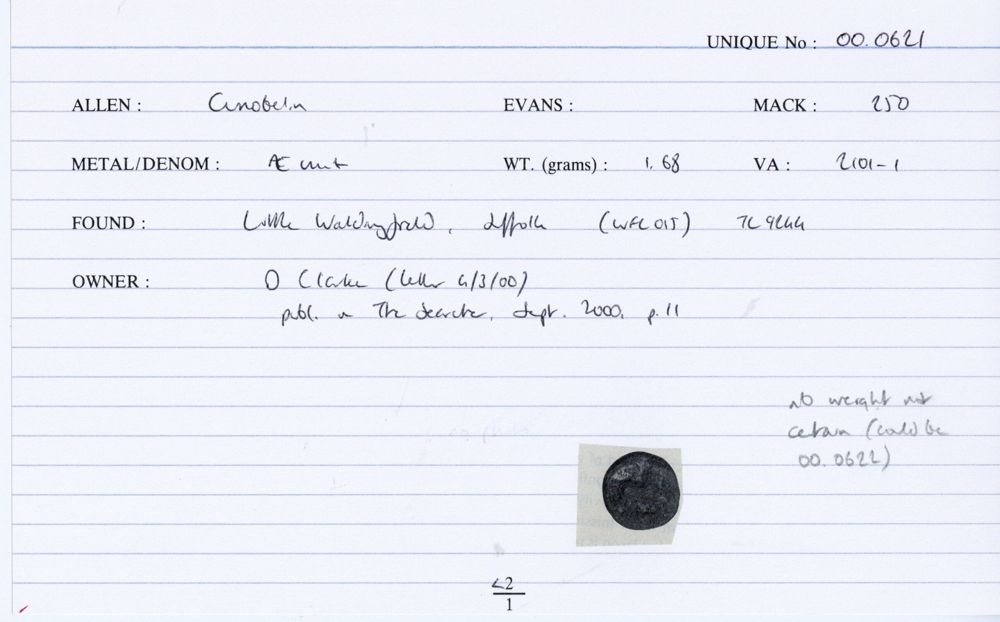 UNIQUE No : 00.0621
ALLEN : Cunobelin EVANS : MACK : 250
METAL/DENOM : Æ unit WT. (grams) : 1.68 VA : 2101-1
FOUND : Little Waldingfield, Suffolk (WFL 015) TL 9244
OWNER : D Clarke (letter 4/3/00)
publ. in The Searcher, Sept. 2000, p.11
nb weight not
certain (could be
00.0622)
<2
1